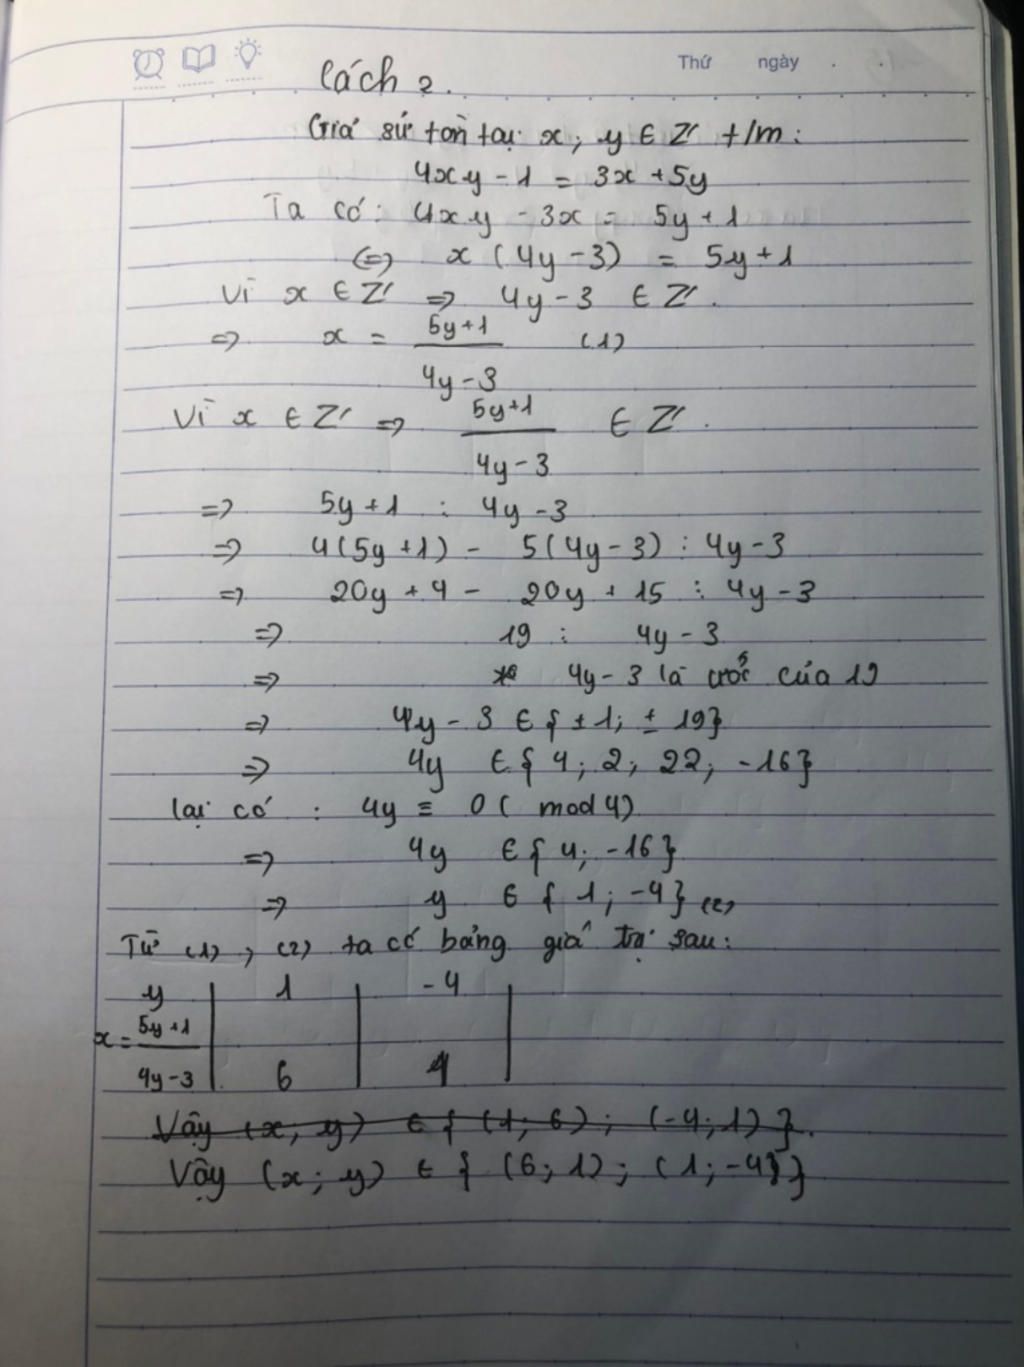 Thứ ngày . .
Cách 2.
Giả sử tồn tại x; y ∈ Z t/m:
4xy - 1 = 3x + 5y
Ta có: 4xy - 3x = 5y + 1
<=> x (4y - 3) = 5y + 1
Vì x ∈ Z => 4y - 3 ∈ Z.
=> x = (5y + 1)/(4y - 3) (1)
Vì x ∈ Z => (5y + 1)/(4y - 3) ∈ Z.
=> 5y + 1 ⋮ 4y - 3
=> 4(5y + 1) - 5(4y - 3) ⋮ 4y - 3
=> 20y + 4 - 20y + 15 ⋮ 4y - 3
=> 19 ⋮ 4y - 3
=> 4y - 3 là ước của 19
=> 4y - 3 ∈ { ±1; ± 19}
=> 4y ∈ { 4; 2; 22; -16}
lại có : 4y ≡ 0 ( mod 4)
=> 4y ∈ { 4; -16}
=> y ∈ { 1; -4} (2)
Từ (1), (2) ta có bảng giá trị sau:
y | 1 | -4 |
x = (5y + 1)/(4y - 3) | 6 | 1 |
Vậy (x; y) ∈ { (1; 6) ; (-4; 1) }.
Vậy (x; y) ∈ { (6; 1) ; (1; -4)}